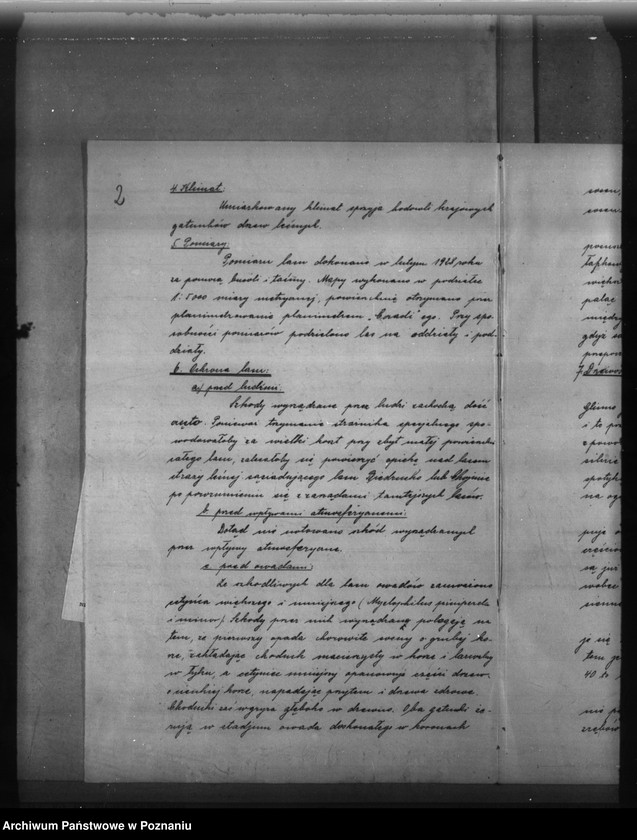 2
4. Klimat.
Umiarkowany klimat sprzyja hodowli krajowych
gatunków drzew leśnych.
5. Pomiary.
Pomiaru lasu dokonano w lutym 1928 roku
za pomocą busoli i taśmy. Mapy wykonano w podziałce
1:5000 miary metrycznej, powierzchnię otrzymano przez
planimetrowanie planimetrem "Coradi"ego. Przy spo-
sobności pomiarów podzielono las na oddziały i pod-
działy.
6. Ochrona lasu.
a) przed ludźmi.
Szkody wyrządzane przez ludzi zachodzą dość
często. Ponieważ trzymanie strażnika specjalnego spo-
wodowałoby za wielki koszt przy zbyt małej powierzchni
całego lasu, zalecałoby się powierzyć opiekę nad lasem
straży leśnej sąsiadującego lasu Biedrusko lub
po porozumieniu się z zarządami tamtejszych lasów.
b. przed wpływami atmosferycznemi.
Dotąd nie notowano szkód wyrządzanych
przez wpływy atmosferyczne.
c. przed owadami
Ze szkodliwych dla lasu owadów zauważono
cetyńca większego i mniejszego (Myelophilus piniperda
i minor). Szkody przez nich wyrządzane polegają na
tem, że pierwszy opada chorowite sosny o grubej ko-
rze, zakładając chodnik macierzysty w korze i larwowy
w łyku, a cetyniec mniejszy opanowuje części drzew
o cienkiej korze, napadając przytem i drzewa zdrowe.
Chodniki zaś wgryza głęboko w drewno. Oba gatunki że-
rują w stadjum owada doskonałego w koronach
7. Drzewo
i to
40
Archiwum Państwowe w Poznaniu